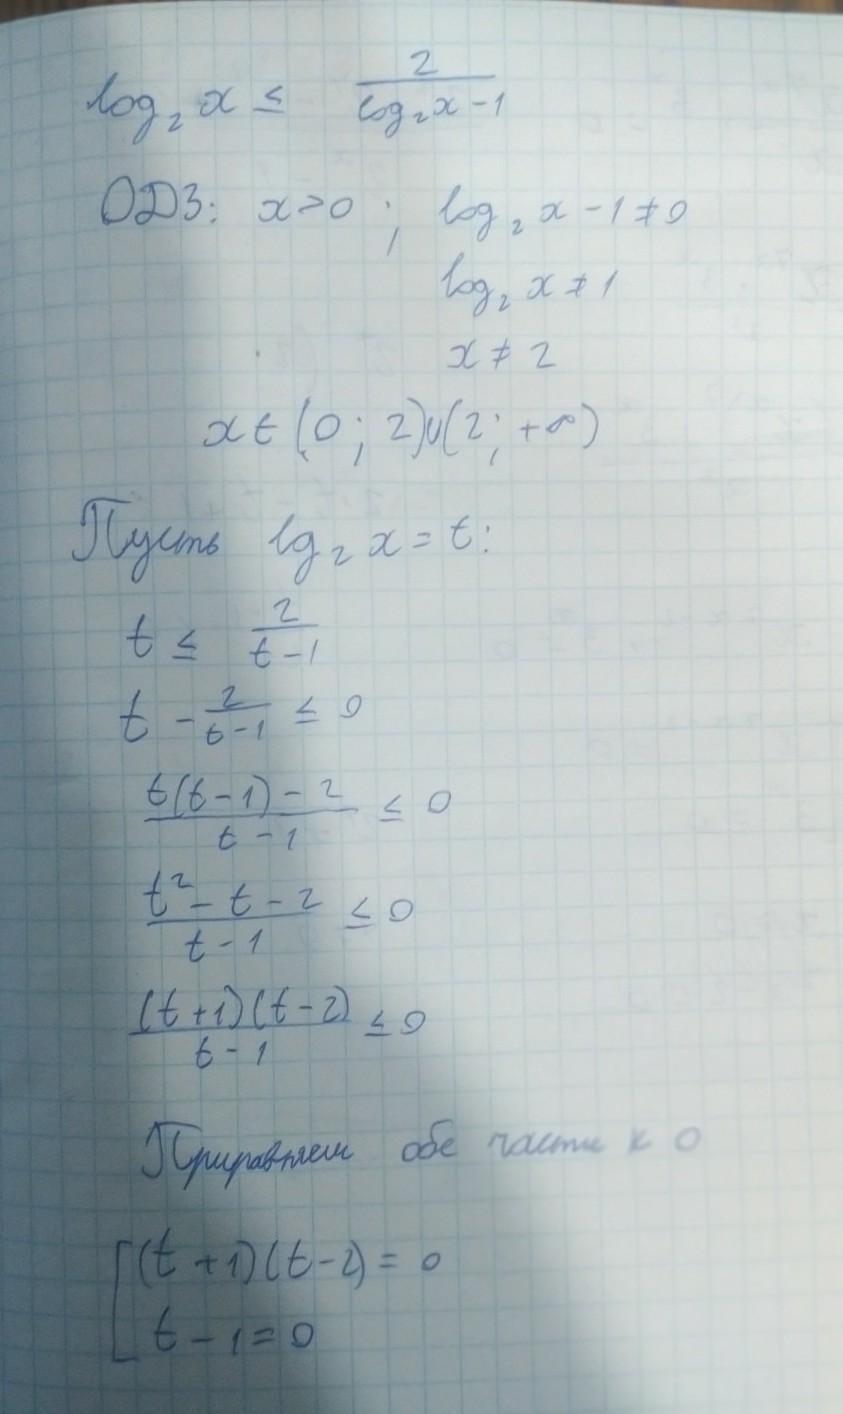 log₂ x ≤ 2/(log₂ x - 1)
ОДЗ: x > 0 ; log₂ x - 1 ≠ 0
log₂ x ≠ 1
x ≠ 2
x ∈ (0 ; 2)∪(2 ; +∞)
Пусть lg₂ x = t:
t ≤ 2/(t - 1)
t - 2/(t - 1) ≤ 0
(t(t - 1) - 2)/(t - 1) ≤ 0
(t² - t - 2)/(t - 1) ≤ 0
((t + 1)(t - 2))/(t - 1) ≤ 0
Приравняем обе части к 0
[(t + 1)(t - 2) = 0
t - 1 = 0